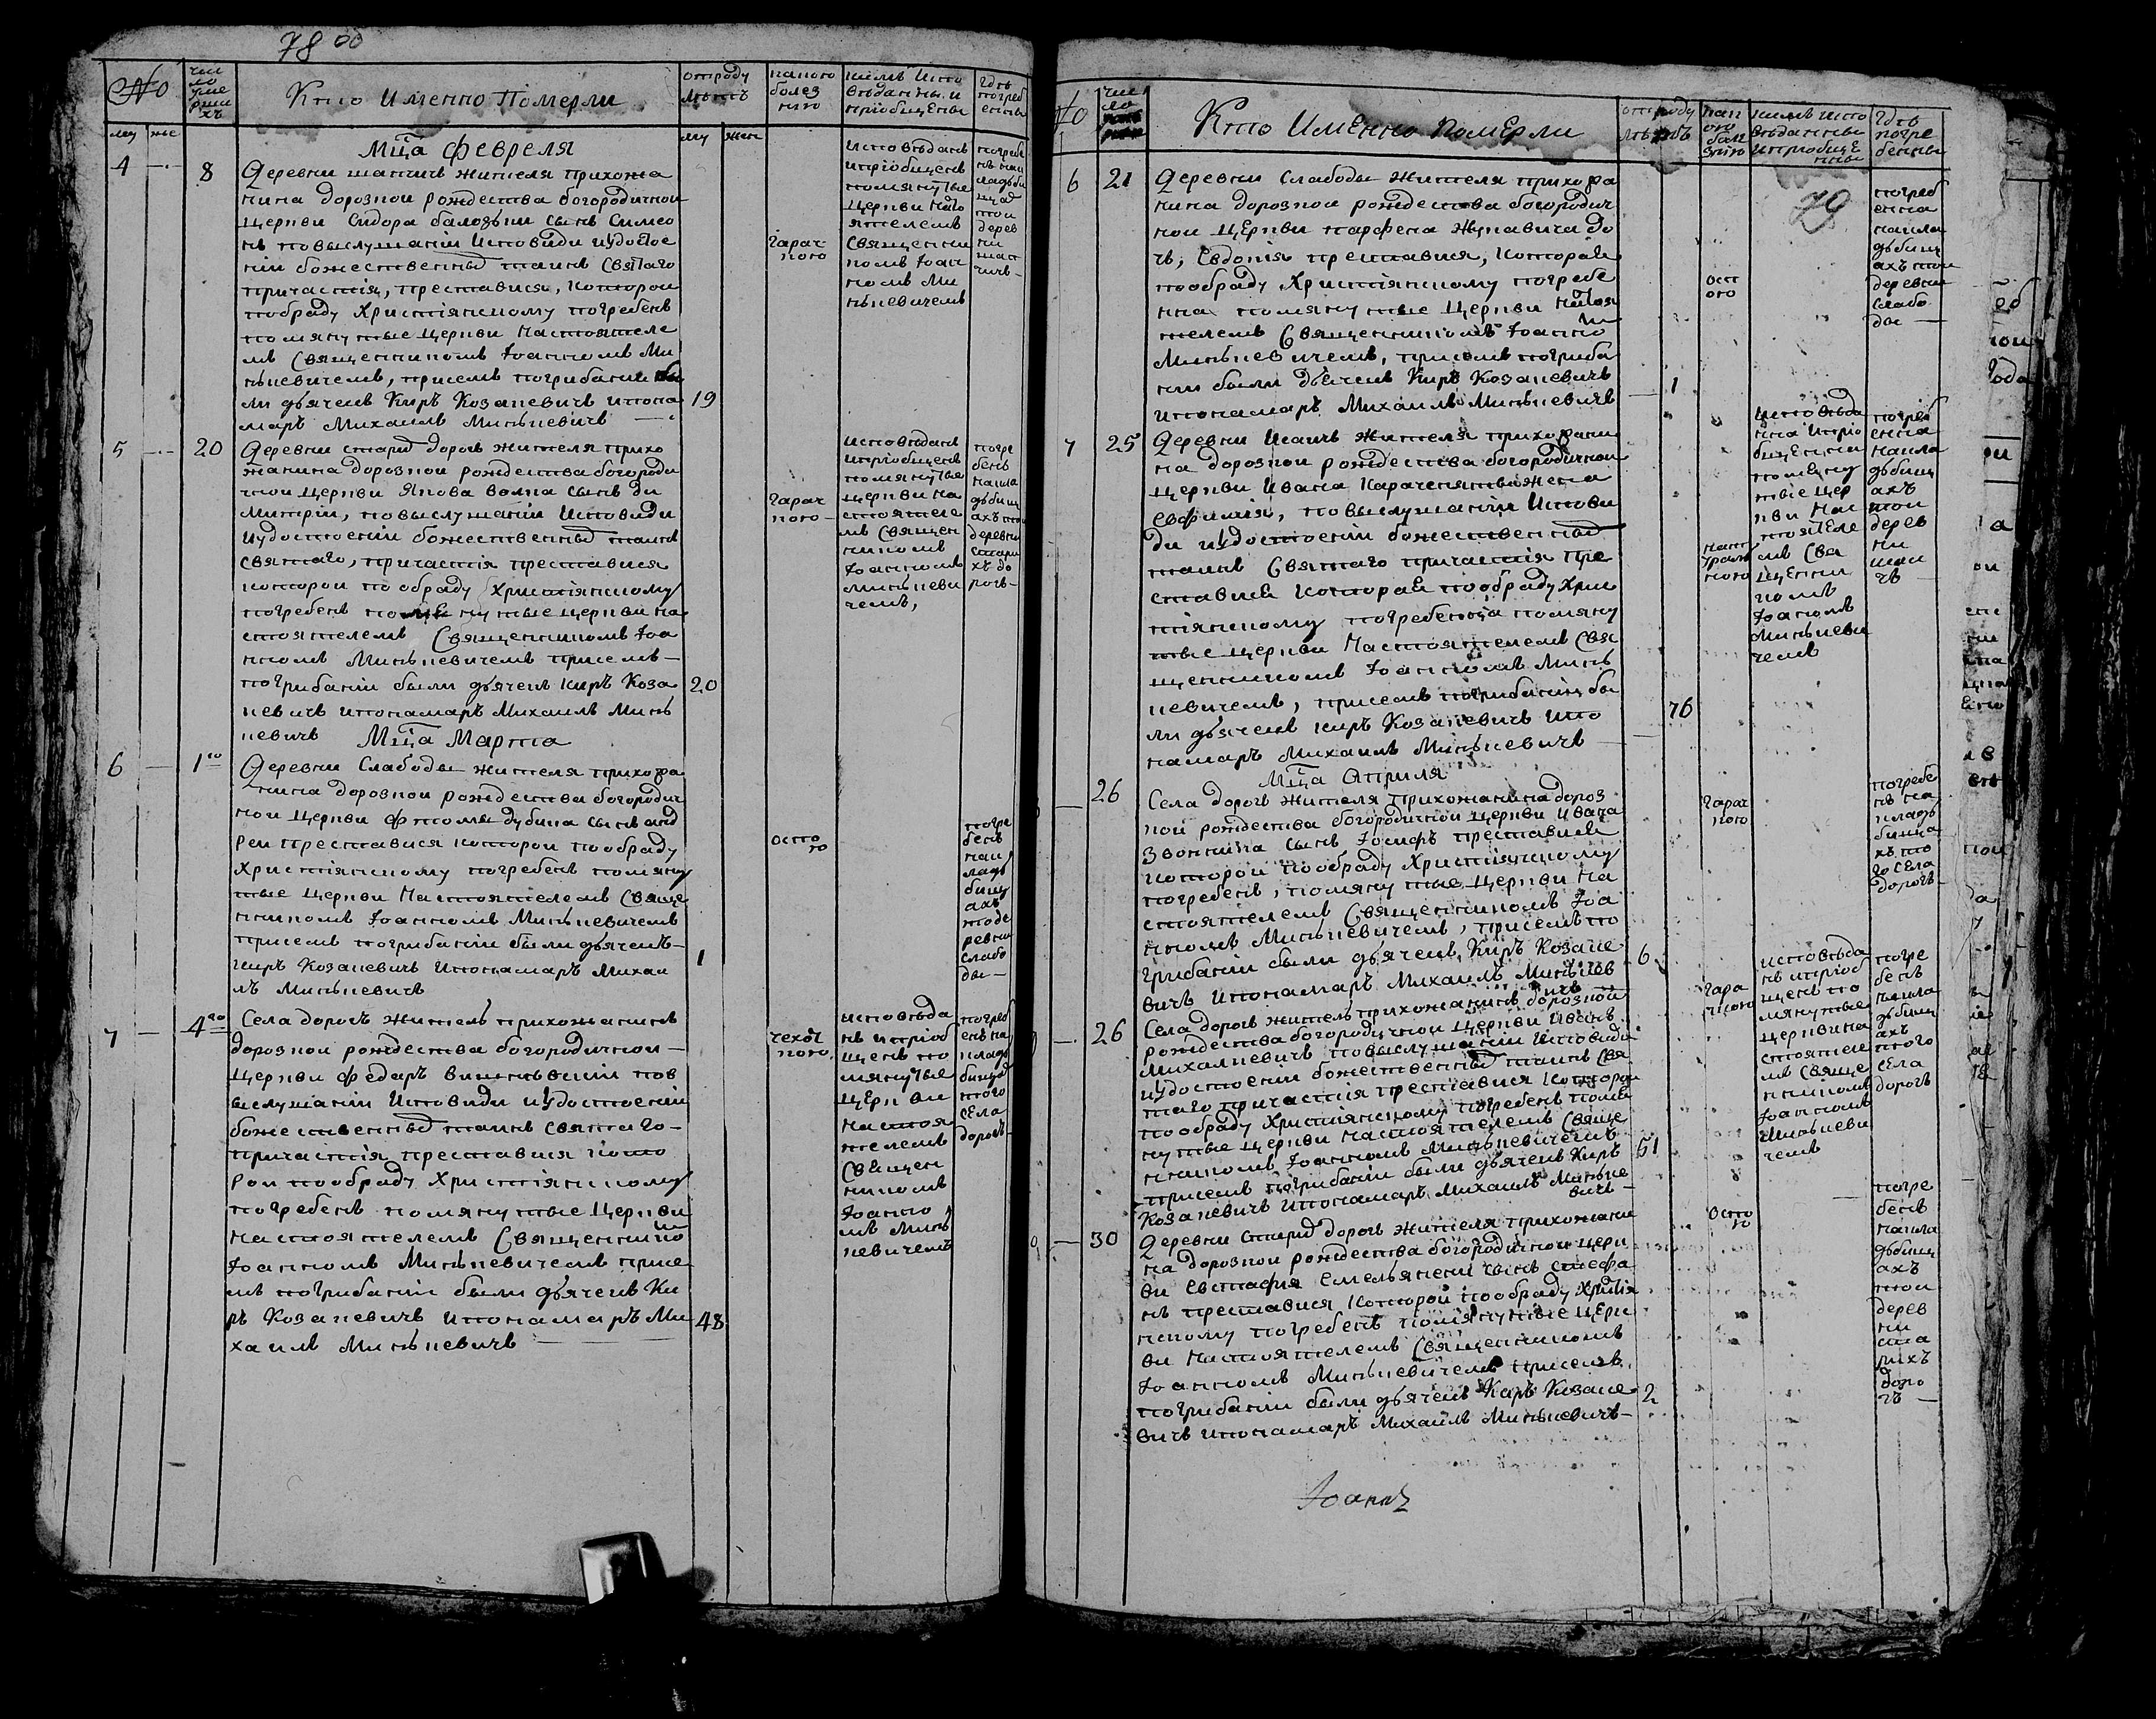 78 об
№
чис
ло
уме
рши
хъ
Кто именно Померли
отроду
лѣтъ
какою
болез
нию
кимъ испо
вѣданны и
пріобщены
гдѣ
погреб
енны
му же
му жен
Мца Февреля
4
8
Деревни шапчичъ жителя прихожа
нина дорозкои рождества богородичнои
церкви Сидора
сынъ Симео
нъ повыслушаніи исповиди иудостое
ніи божественныхъ таинъ святаго
причастія, преставися, которои
пообраду Християнскому погребенъ
помянутые церкви настоятеле
мъ священникомъ Іоанномъ Ми
нькевичемъ, присемъ погрибаніи бы
ли дьячекъ Киръ Козакевичъ ипона
маръ Михаилъ Минькевичъ
19
гарач
кою
исповѣданъ
ипріобщенъ
помянутые
церкви насто
ятелемъ
священни
комъ Іоан
номъ Ми
нькевичемъ
5
20
Деревни старихъ дорогъ жителя прихо
жанина дорозкои рождества богороди
чнои церкви Якова волка сынъ ди
митріи, повыслушаніи исповиди
иудостоеніи божественныхъ таинъ
святаго, причастія преставися
которои по обраду Християнскому
погребенъ помянутые церкви на
стоятелемъ Священникомъ Іоа
нномъ Минькевичемъ присемъ
погрибаніи были дьячекъ киръ Коза
кевичъ ипонамаръ Михаилъ Минь
кевичъ
20
гарач
кою
исповѣданъ
ипріобщенъ
помянутые
церкви на
стоятеле
мъ священ
никомъ
Іоанномъ
минькеви
чемъ,
погре
бенъ
накла
дьбищ
ахъ тои
деревни
стари
хъ до
рогъ
Мца Марта
6
1го
Деревни Слабоды жителя прихожа
нина дорозкои рождества богородич
нои церкви Фтомы дубина сынъ анд
реи преставися которои пообраду
Християнскому погребенъ помяну
тые церкви Настоятелемъ Свяще
нникомъ Іоанномъ Минькевичемъ
присемъ погрибаніи были дьячекъ
киръ Козакевичъ ипонамаръ Михаи
лъ Минькевичъ
1
оспо
ю
погре
бенъ
нак
ладь
бищ
ахъ
тоде
ревни
слабо
ды
7
4го
Села дорогъ житель прихожанинъ
дорозкои рождества богородичнои
церкви Федаръ
пов
ыслушаніи исповиди иудостоеніи
божественныхъ таинъ святаго
причастія преставися кото
рои пообраду Християнскому
погребенъ помянутые церкви
настоятелемъ Священнико
Іоанномъ Минькевичемъ присе
мъ погрибаніи были дьячекъ Ки
ръ Козакевичъ ипонамаръ Ми
хаилъ Минькевичъ
48
чехот
кою
исповѣда
нъ ипріоб
щенъ по
мянутые
церкви
настоя
телемъ
священ
никомъ
Іоанно
мъ минь
кевичемъ
погреб
енъ на
кладь
бищахъ
того
села
дорогъ
№
чис
ло
Кто Именно Померли
отроду
лѣтъ
как
ою
бол
эзнію
кимъ испо
вѣданны
ипріобще
нны
гдѣ
погре
бенны
79
6
21
Деревни Слабоды жителя прихожа
нина дорозкои рождества богородич
нои церкви парфена Жукавича до
чъ, Евдокія преставися, которая
пообраду Християнскому погребе
нна помянутые церкви настоя
телемъ Священникомъ Іоанно
Минькевичемъ, присемъ погриба
нии были дьячекъ Киръ Козакевичъ
ипонамаръ Михаилъ Минькевичъ
1
осп
ою
погреб
енна
накла
дьбищ
ахъ тои
деревни
слабо
ды
7
25
Деревни
жителя прихожани
на дорозкои рождества богородичнои
церкви Ивана
жена
евфимія, повыслушаніи исповы
ди иудостоеніи божественныхъ
таинъ Святаго причастія пре
ставися которая пообраду Хрис
тіянскому погребенна помяну
тые церкви настоятелемъ Свя
щенникомъ Іоанномъ минь
кевичемъ, присемъ погрибаніи бы
ли дьячекъ киръ Козакевичъ ипо
намаръ Михаилъ Минькевичъ
76
исповѣда
нна ипріо
бщенна
помяну
тые цер
кви нас
тоятеле
мъ свя
щенни
комъ
Іоанномъ
Минькеви
чемъ
погреб
енна
накла
дьбищ
ахъ
тои
дерев
ни
Мца Априля
26
Села дорогъ жителя прихожанина дороз
кои рождества богородичнои церкви Ивана
сынъ Іосифъ преставися
которои пообраду Християнскому
погребенъ, помянутые церкви на
стоятелемъ Священникомъ Іоа
нномъ Минькевичемъ, присемъ по
грибаніи были дьячекъ, Киръ Козаке
вичъ ипонамаръ Михаилъ Минькев
ичъ
6
гарач
кою
погребе
нъ на
кладь
бища
хъ то
го села
дорогъ
26
Села дорогъ житель прихожанинъ дорозкои
рождества богородичнои церкви Иванъ
Михалкевичъ повыслушаніи исповиди
иудостоеніи божественныхъ таинъ Свя
таго причастія преставися которои
пообраду Християнскому погребенъ помя
нутые церкви настоятелемъ Свяще
нникомъ Іоанномъ Минькевичемъ
присемъ погрибаніи были дьячекъ Киръ
Козакевичъ ипонамаръ Михаилъ Минькe
вичъ
51
гара
чкою
исповѣда
нъ ипріоб
щенъ по
мянутые
церкви на
стоятеле
мъ свяще
нникомъ
Іоанномъ
Минькеви
чемъ
погре
бенъ
накла
дьбищ
ахъ
того
села
дорогъ
30
Деревни старихъ дорогъ жителя прихожани
на дорозкои рождества богородичнои церк
ви евстафия
сынъ стефа
нъ преставися которои пообраду Християн
скому погребенъ помянутые церк
ви настоятелемъ Священникомъ
Іоанномъ Минькевичемъ присемъ
погрибаніи были дьячекъ Киръ Козаке
вичъ ипонамаръ Михаилъ Минькевичъ
2
оспо
ю
погре
бенъ
накла
дьбищ
ахъ
тои
дерев
ни
ста
рихъ
доро
гъ
Іоаннъ